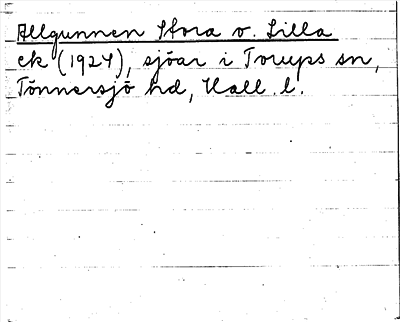 Allgunnen Stora o. Lilla
ek (1924), sjöar i Torups sn,
Tönnersjö hd, Hall. l.